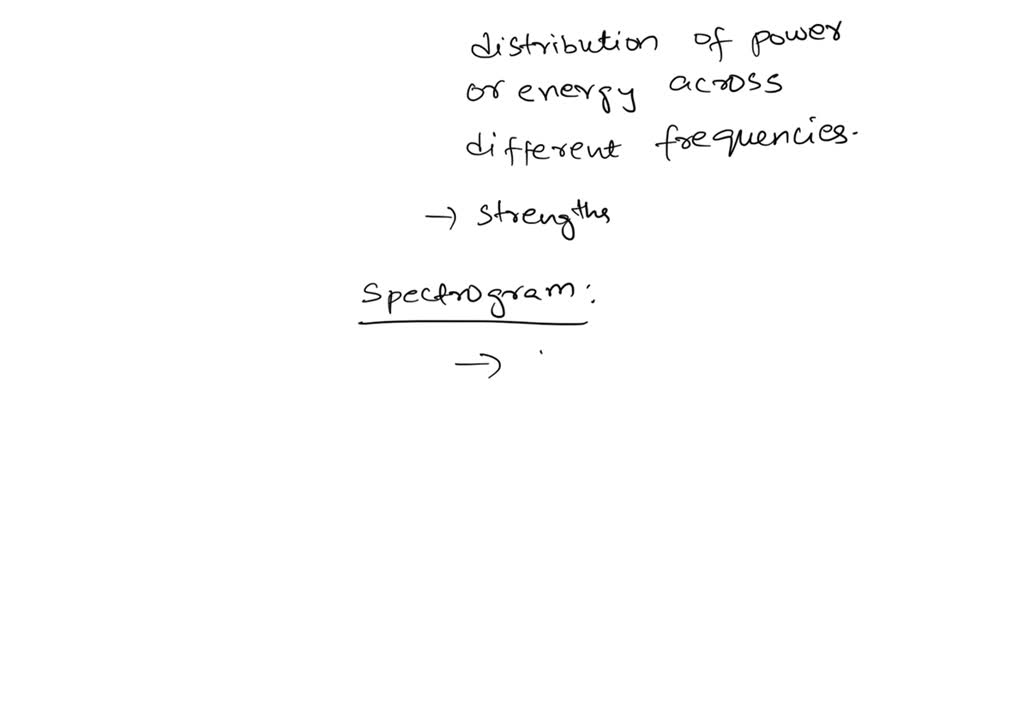 distribution of power
or energy across
different frequencies.
→ strengths
Spectrogram:
→